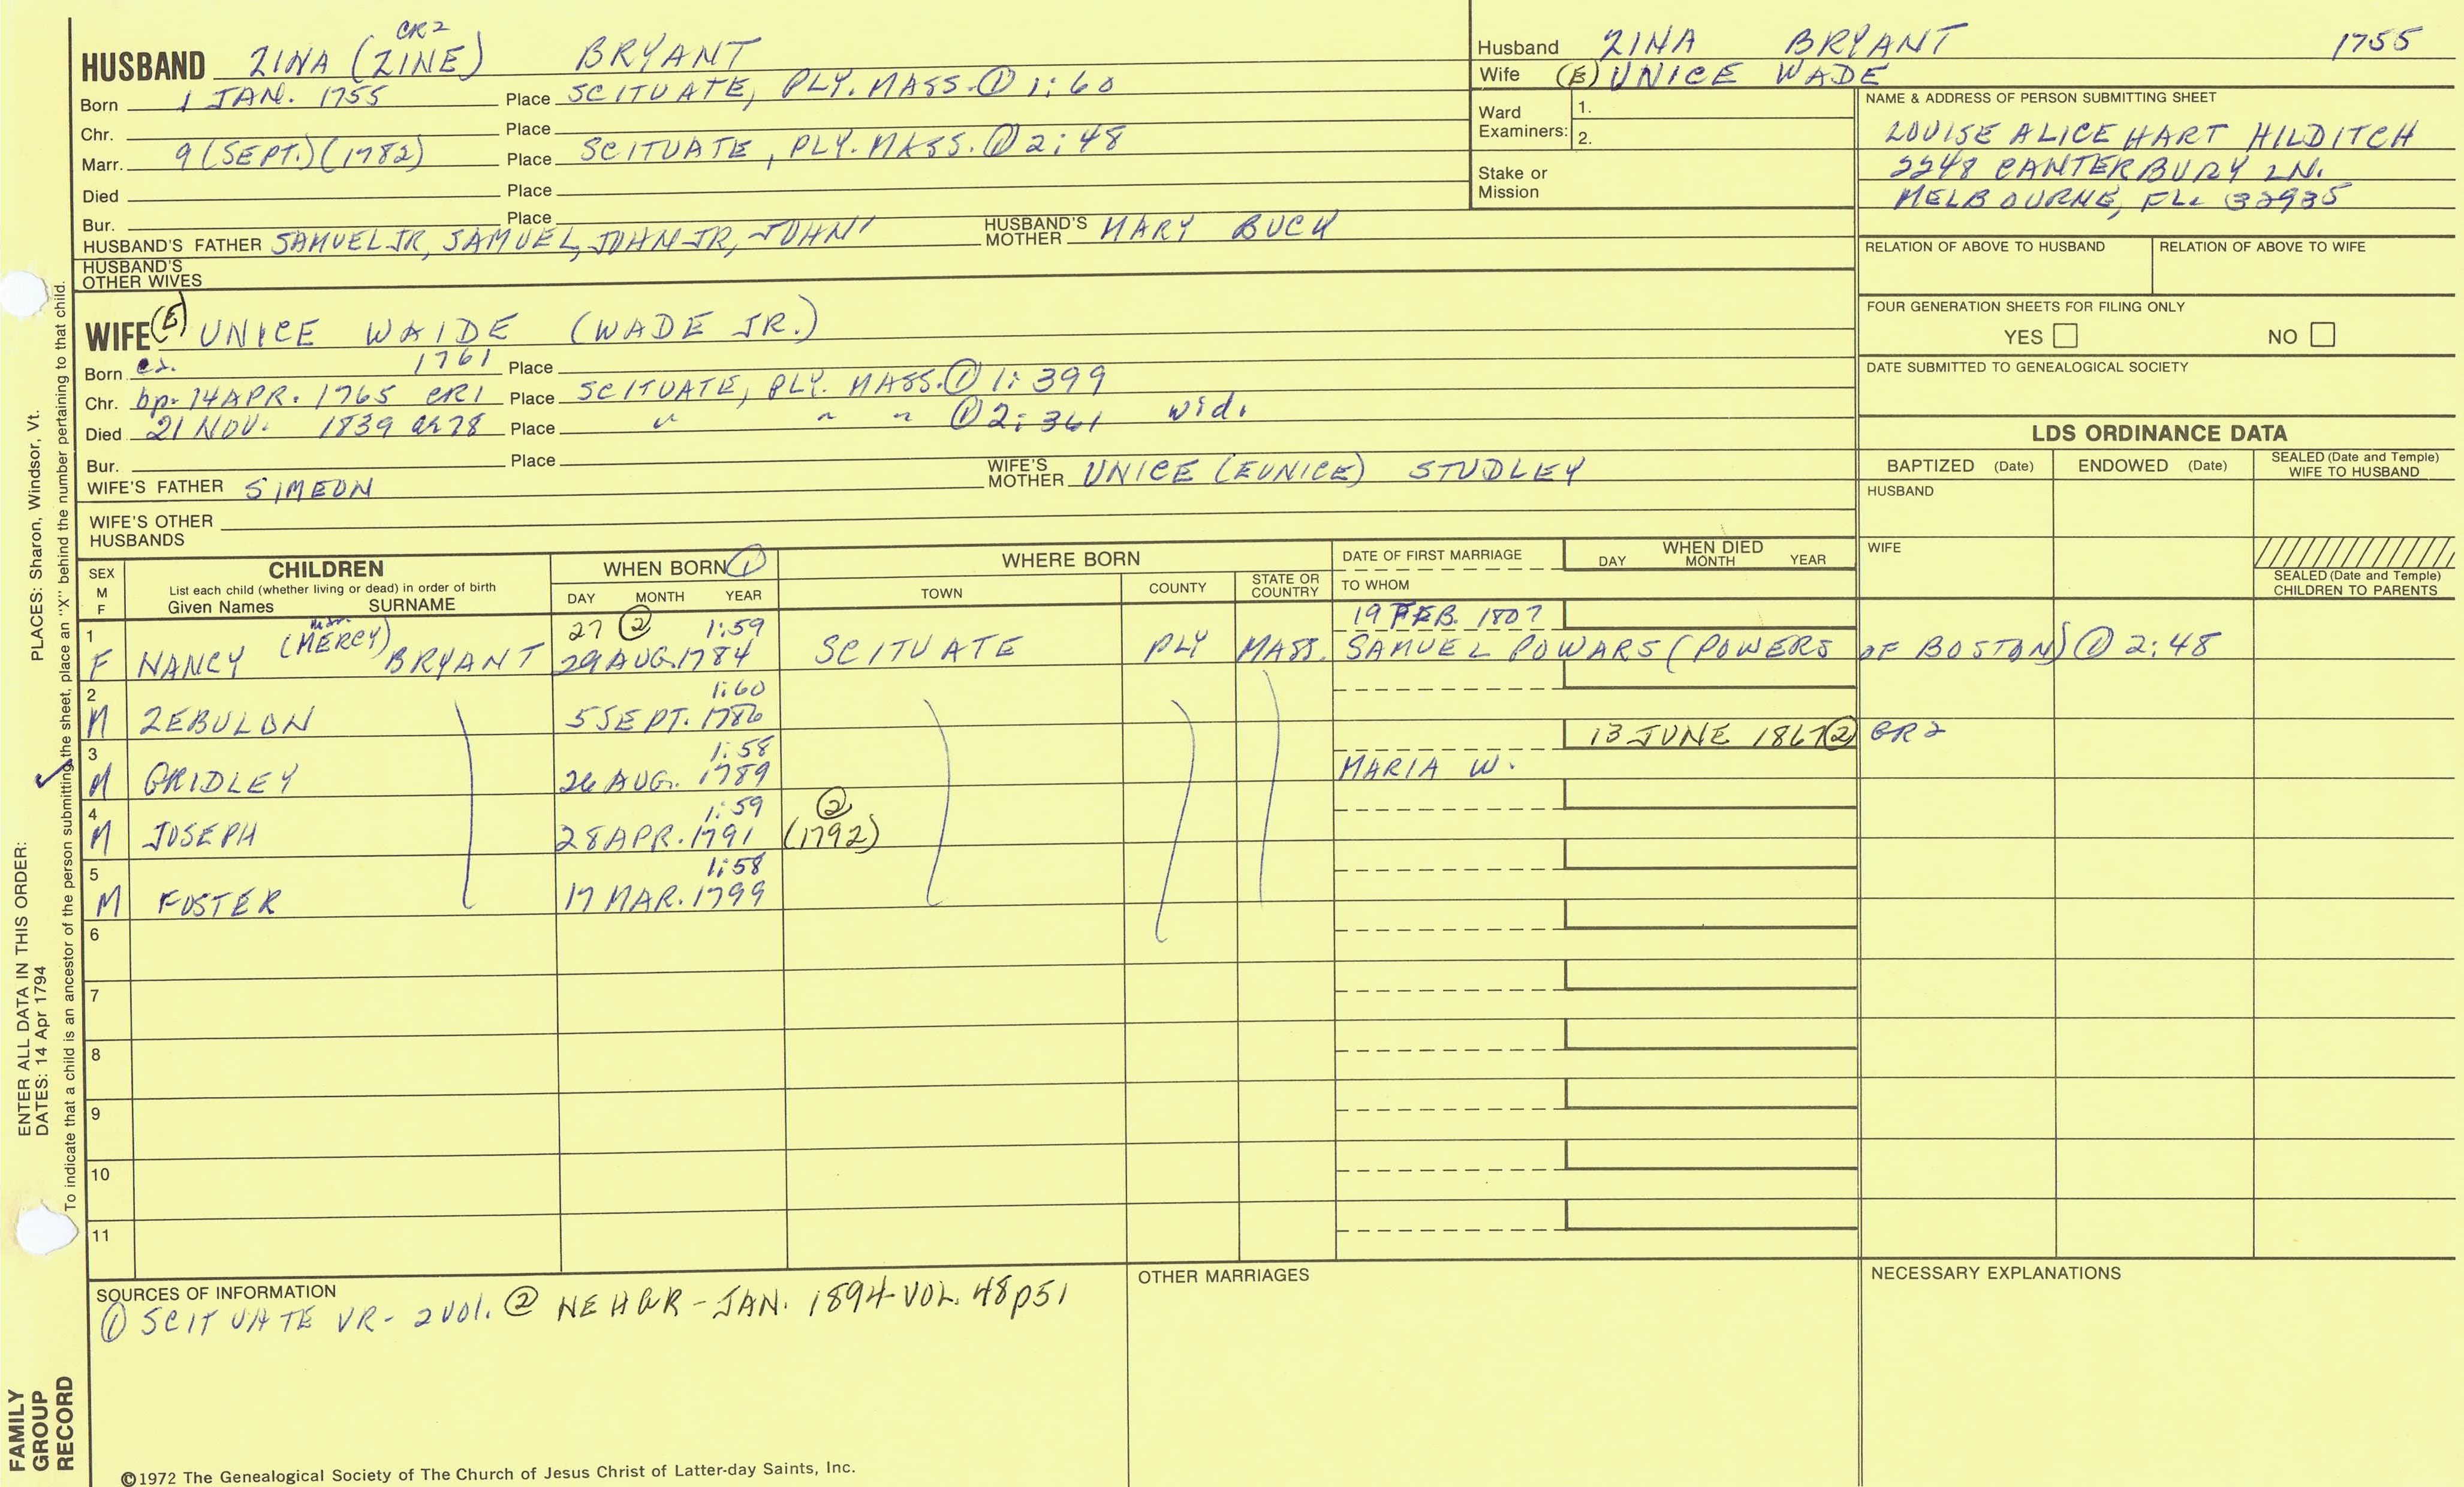 CR2
HUSBAND ZINA (ZINE) BRYANT
Born 1 JAN. 1755 Place SCITUATE, PLY. MASS. ① 1:60
Chr. Place
Marr. 9 (SEPT.) (1782) Place SCITUATE, PLY. MASS. ① 2:48
Died Place
Bur. Place
HUSBAND'S FATHER SAMUEL JR, SAMUEL, JOHN JR, JOHN' HUSBAND'S MOTHER MARY BUCK
HUSBAND'S OTHER WIVES
WIFE (E) UNICE WAIDE (WADE JR.)
Born ca. 1761 Place
Chr. bp. 14 APR. 1765 CR1 Place SCITUATE, PLY. MASS. ① 1:399
Died 21 NOV. 1839 ae 78 Place " " " ① 2:361 wid.
Bur. Place
WIFE'S FATHER SIMEON WIFE'S MOTHER UNICE (EUNICE) STUDLEY
WIFE'S OTHER HUSBANDS
Husband ZINA BRYANT 1755
Wife (E) UNICE WADE
Ward Examiners: 1. 2.
Stake or Mission
NAME & ADDRESS OF PERSON SUBMITTING SHEET
LOUISE ALICE HART HILDITCH
2248 CANTERBURY LN.
MELBOURNE, FL. 32935
RELATION OF ABOVE TO HUSBAND RELATION OF ABOVE TO WIFE
FOUR GENERATION SHEETS FOR FILING ONLY
YES NO
DATE SUBMITTED TO GENEALOGICAL SOCIETY
LDS ORDINANCE DATA
BAPTIZED (Date) ENDOWED (Date) SEALED (Date and Temple) WIFE TO HUSBAND
HUSBAND
WIFE
SEALED (Date and Temple) CHILDREN TO PARENTS
SEX M F
CHILDREN
List each child (whether living or dead) in order of birth
Given Names SURNAME
WHEN BORN ①
DAY MONTH YEAR
WHERE BORN
TOWN COUNTY STATE OR COUNTRY
DATE OF FIRST MARRIAGE
TO WHOM
WHEN DIED
DAY MONTH YEAR
1 27 ② 1:59 19 FEB. 1807
F NANCY (MERCY) BRYANT 29 AUG. 1784 SCITUATE PLY MASS. SAMUEL POWARS (POWERS OF BOSTON) ① 2:48
2 1:60
M ZEBULON 5 SEPT. 1786
3 1:58 13 JUNE 1867 ② GR2
M GRIDLEY 26 AUG. 1789 MARIA W.
4 1:59 ②
M JOSEPH 28 APR. 1791 (1792)
5 1:58
M FOSTER 17 MAR. 1799
6
7
8
9
10
11
SOURCES OF INFORMATION
① SCITUATE VR- 2 Vol. ② NEH&R - JAN. 1894 - VOL. 48 p51
OTHER MARRIAGES
NECESSARY EXPLANATIONS
©1972 The Genealogical Society of The Church of Jesus Christ of Latter-day Saints, Inc.
FAMILY GROUP RECORD
ENTER ALL DATA IN THIS ORDER:
DATES: 14 Apr 1794
PLACES: Sharon, Windsor, Vt.
To indicate that a child is an ancestor of the person submitting the sheet, place an "X" behind the number pertaining to that child.